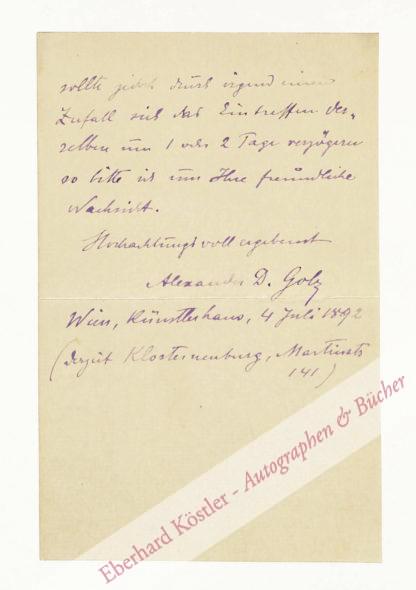 sollte jedoch durch irgend einen
Zufall sich das Eintreffen der-
selben um 1 oder 2 Tage verzögern
so bitte ich um Ihre freundliche
Nachsicht.
Hochachtungsvoll ergebenst
Alexander D. Golz
Wien, Künstlerhaus, 4 Juli 1892
(derzeit Klosterneuburg, Martinstr
141)
Eberhard Köstler - Autographen & Bücher